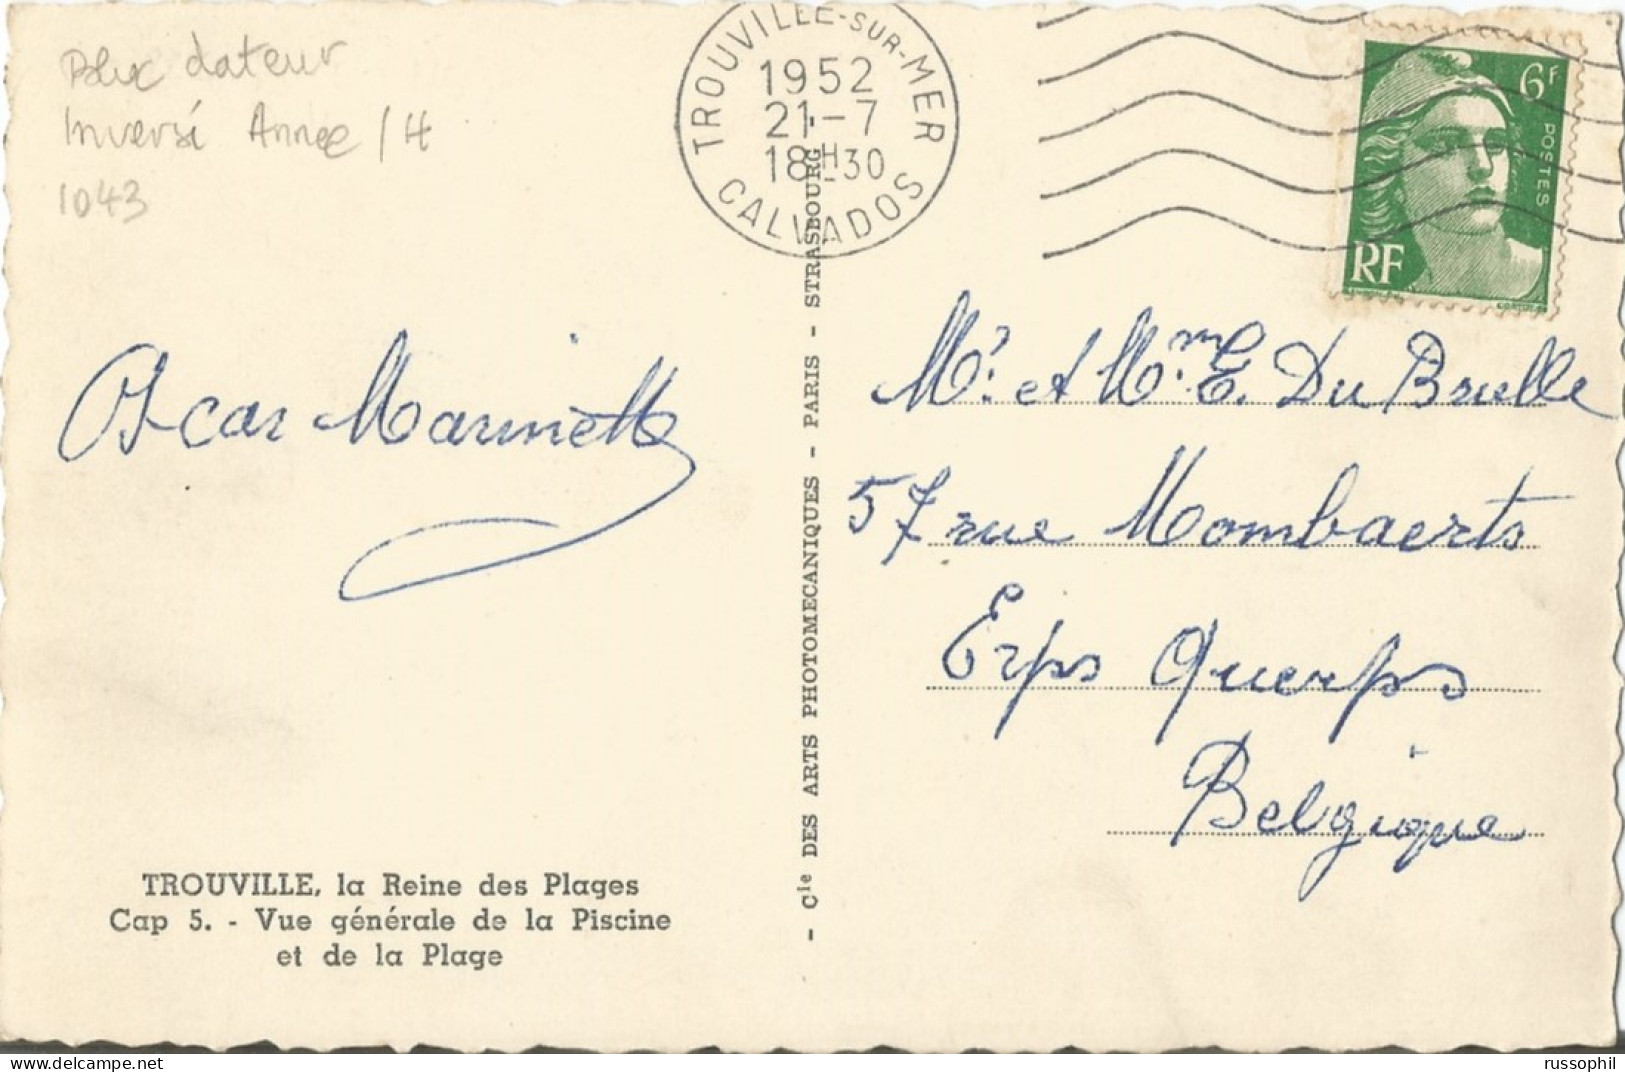 Bloc dateur
Inversé Année / H
1043
TROUVILLE-SUR-MER
1952
21-7
18H30
CALVADOS
6F
POSTES
RF
Oscar Marinette
Mr. et Mme E. Du Bruelle
57 rue Mombaerts
Erps Querps
Belgique
- Cie DES ARTS PHOTOMECANIQUES - PARIS - STRASBOURG -
TROUVILLE, la Reine des Plages
Cap 5. - Vue générale de la Piscine
et de la Plage
www.delcampe.net
russophil